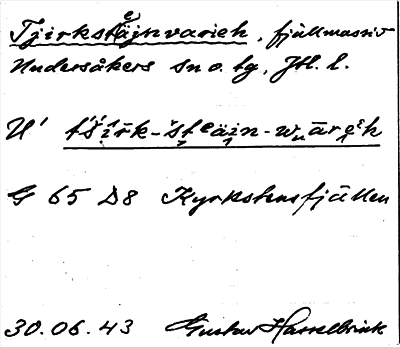 Tjirkstäjnvarieh, fjällmassiv
Undersåkers sn o. tg, Jtl. l.
U' tśírk-šteäin-wāreh
G 65 D8 Kyrkstensfjällen
30.06.43 Gustav Hasselbrink